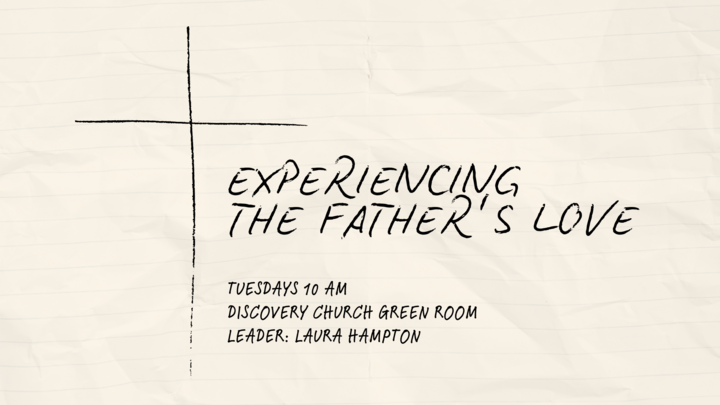 EXPERIENCING
THE FATHER'S LOVE
TUESDAYS 10 AM
DISCOVERY CHURCH GREEN ROOM
LEADER: LAURA HAMPTON